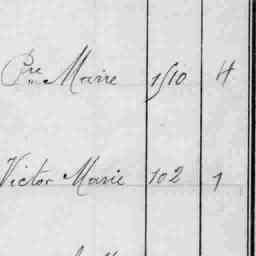 Pre Marie 1510 4
Victor Marie 102 1